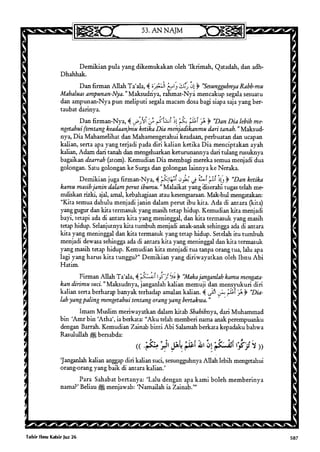 53. AN NAJM
Demikian pula yang dikemukakan oleh 'Ikrimah, Qatadah, dan adh-
Dhahhak.
Dan firman Allah Ta'ala, ﴿ إِنَّ رَبَّكَ وَاسِعُ الْمَغْفِرَةِ ﴾ "Sesungguhnya Rabb-mu
Mahaluas ampunan-Nya." Maksudnya, rahmat-Nya mencakup segala sesuatu
dan ampunan-Nya pun meliputi segala macam dosa bagi siapa saja yang ber-
taubat darinya.
Dan firman-Nya, ﴿ هُوَ أَعْلَمُ بِكُمْ إِذْ أَنشَأَكُم مِّنَ الْأَرْضِ ﴾ "Dan Dia lebih me-
ngetahui (tentang keadaan)mu ketika Dia menjadikanmu dari tanah." Maksud-
nya, Dia Mahamelihat dan Mahamengetahui keadaan, perbuatan dan ucapan
kalian, serta apa yang terjadi pada diri kalian ketika Dia menciptakan ayah
kalian, Adam dari tanah dan mengeluarkan keturunannya dari tulang rusuknya
bagaikan dzarrah (atom). Kemudian Dia membagi mereka semua menjadi dua
golongan. Satu golongan ke Surga dan golongan lainnya ke Neraka.
Demikian juga firman-Nya, ﴿ وَإِذْ أَنتُمْ أَجِنَّةٌ فِي بُطُونِ أُمَّهَاتِكُمْ ﴾ "Dan ketika
kamu masih janin dalam perut ibumu." Malaikat yang diserahi tugas telah me-
nuliskan rizki, ajal, amal, kebahagiaan atau kesengsaraan. Mak-hul mengatakan:
"Kita semua dahulu menjadi janin dalam perut ibu kita. Ada di antara (kita)
yang gugur dan kita termasuk yang masih tetap hidup. Kemudian kita menjadi
bayi, tetapi ada di antara kita yang meninggal, dan kita termasuk yang masih
tetap hidup. Selanjutnya kita tumbuh menjadi anak-anak sehingga ada di antara
kita yang meninggal dan kita termasuk yang tetap hidup. Setelah itu tumbuh
menjadi dewasa sehingga ada di antara kita yang meninggal dan kita termasuk
yang masih tetap hidup. Kemudian kita menjadi tua tanpa orang tua, lalu apa
lagi yang harus kita tunggu?" Demikian yang diriwayatkan oleh Ibnu Abi
Hatim.
Firman Allah Ta'ala, ﴿ فَلَا تُزَكُّوا أَنفُسَكُمْ ﴾ "Maka janganlah kamu mengata-
kan dirimu suci." Maksudnya, janganlah kalian memuji dan mensyukuri diri
kalian serta berharap banyak terhadap amalan kalian. ﴿ هُوَ أَعْلَمُ بِمَنِ اتَّقَىٰ ﴾ "Dia-
lah yang paling mengetahui tentang orang yang bertakwa."
Imam Muslim meriwayatkan dalam kitab Shahihnya, dari Muhammad
bin 'Amr bin 'Atha', ia berkata: "Aku telah memberi nama anak perempuanku
dengan Barrah. Kemudian Zainab binti Abi Salamah berkata kepadaku bahwa
Rasulullah ﷺ bersabda:
(( لَا تُزَكُّوا أَنْفُسَكُمْ إِنَّ اللهَ أَعْلَمُ بِأَهْلِ الْبِرِّ مِنْكُمْ ))
'Janganlah kalian anggap diri kalian suci, sesungguhnya Allah lebih mengetahui
orang-orang yang baik di antara kalian.'
Para Sahabat bertanya: 'Lalu dengan apa kami boleh memberinya
nama?' Beliau ﷺ menjawab: 'Namailah ia Zainab.'"
Tafsir Ibnu Katsir Juz 26
587